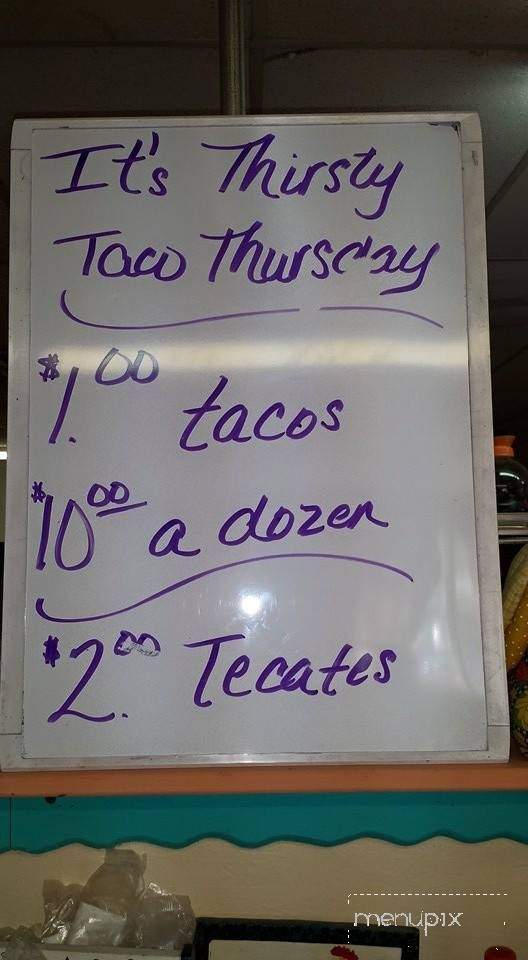 It's Thirsty
Taco Thursday
$1.00 tacos
$10.00 a dozen
$2.00 Tecates
menupix